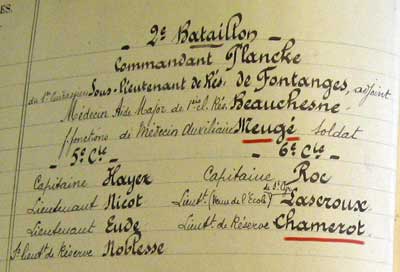 ES.
2e Bataillon
Commandant Plancke
Sous-Lieutenant de Rés. de Fontanges, adjoint
Médecin Aide Major de 1ère cl. Rés. Beauchesne
fonctions de Médecin Auxiliaire Meugé soldat
5e Cie 6e Cie
Capitaine Hayez Capitaine Roc
Lieutenant Nicot Lieutt (venu de l'Ecole) de St Cyr Laseroux
Lieutenant Eude Lieutt de Réserve Chamerot
S. lieutt de Réserve Noblesse